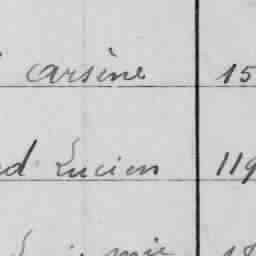 Arsène 15
d Lucien 119